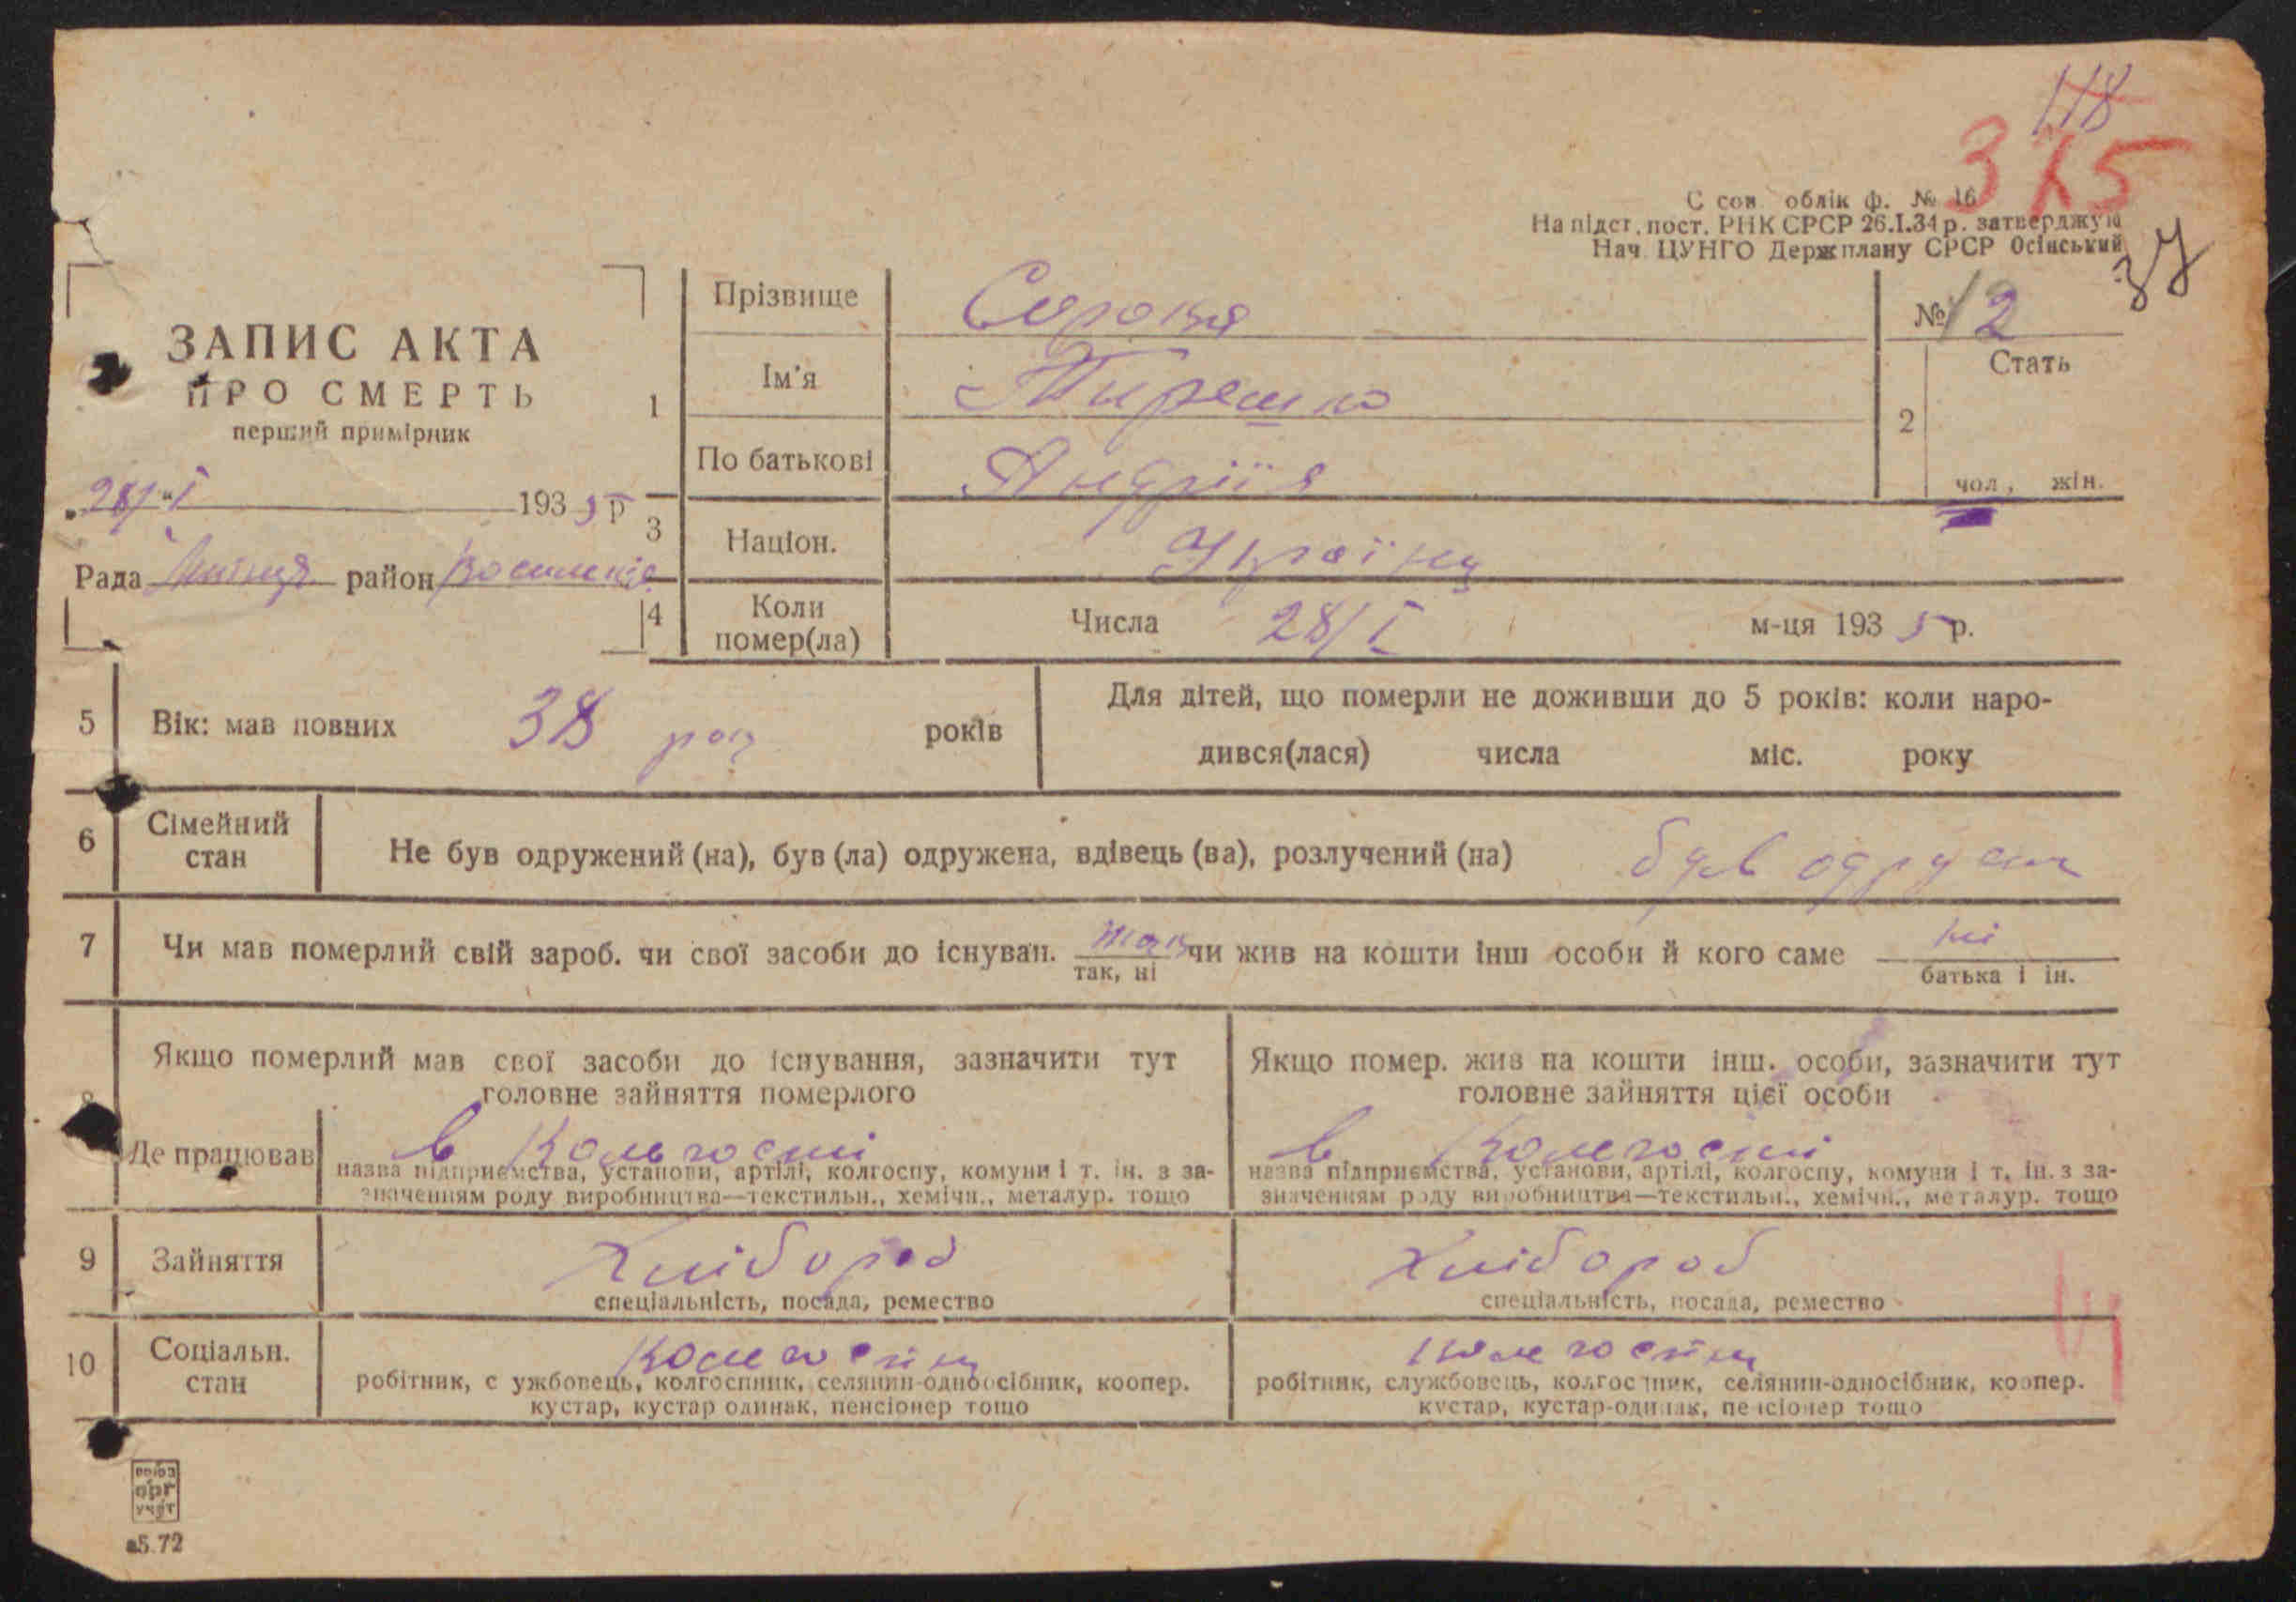 118
375
С сов. облік ф. № 16
На підст. пост. РНК СРСР 26.I.34 р. затверджую
Нач. ЦУНГО Держплану СРСР Осінський
ЗУ
ЗАПИС АКТА
ПРО СМЕРТЬ
перший примірник
28/I 1935 р
Рада район
1
Прізвище Сорока
Ім'я Тирешко
По батькові Андрія
№ 12
2
Стать
чол., жін.
3 Націон. Україну
4 Коли помер(ла) Числа 28/I м-ця 1935 р.
5 Вік: мав повних 38 років
Для дітей, що померли не доживши до 5 років: коли наро-
дився(лася) числа міс. року
6 Сімейний стан Не був одружений (на), був (ла) одружена, вдівець (ва), розлучений (на) був одруж
7 Чи мав померлий свій зароб. чи свої засоби до існуван. так чи жив на кошти інш особи й кого саме ні
так, ні батька і ін.
8
Якщо померлий мав свої засоби до існування, зазначити тут
головне зайняття померлого
Якщо помер. жив на кошти інш. особи, зазначити тут
головне зайняття цієї особи
Де працював в Кольгоспі
назва підприємства, установи, артілі, колгоспу, комуни і т. ін. з за-
значенням роду виробництва—текстильн., хемічн., металур. тощо
в Колгоспі
назва підприємства, установи, артілі, колгоспу, комуни і т. ін. з за-
значенням роду виробництва—текстильн., хемічн., металур. тощо
9 Зайняття Хлібороб
спеціальність, посада, ремество
Хлібороб
спеціальність, посада, ремество
10 Соціальн. стан
робітник, службовець, колгоспник, селянин-односібник, коопер.
кустар, кустар одинак, пенсіонер тощо
робітник, службовець, колгоспник, селянин-односібник, коопер.
кустар, кустар-одинак, пенсіонер тощо
союз
орг
учет
а5.72